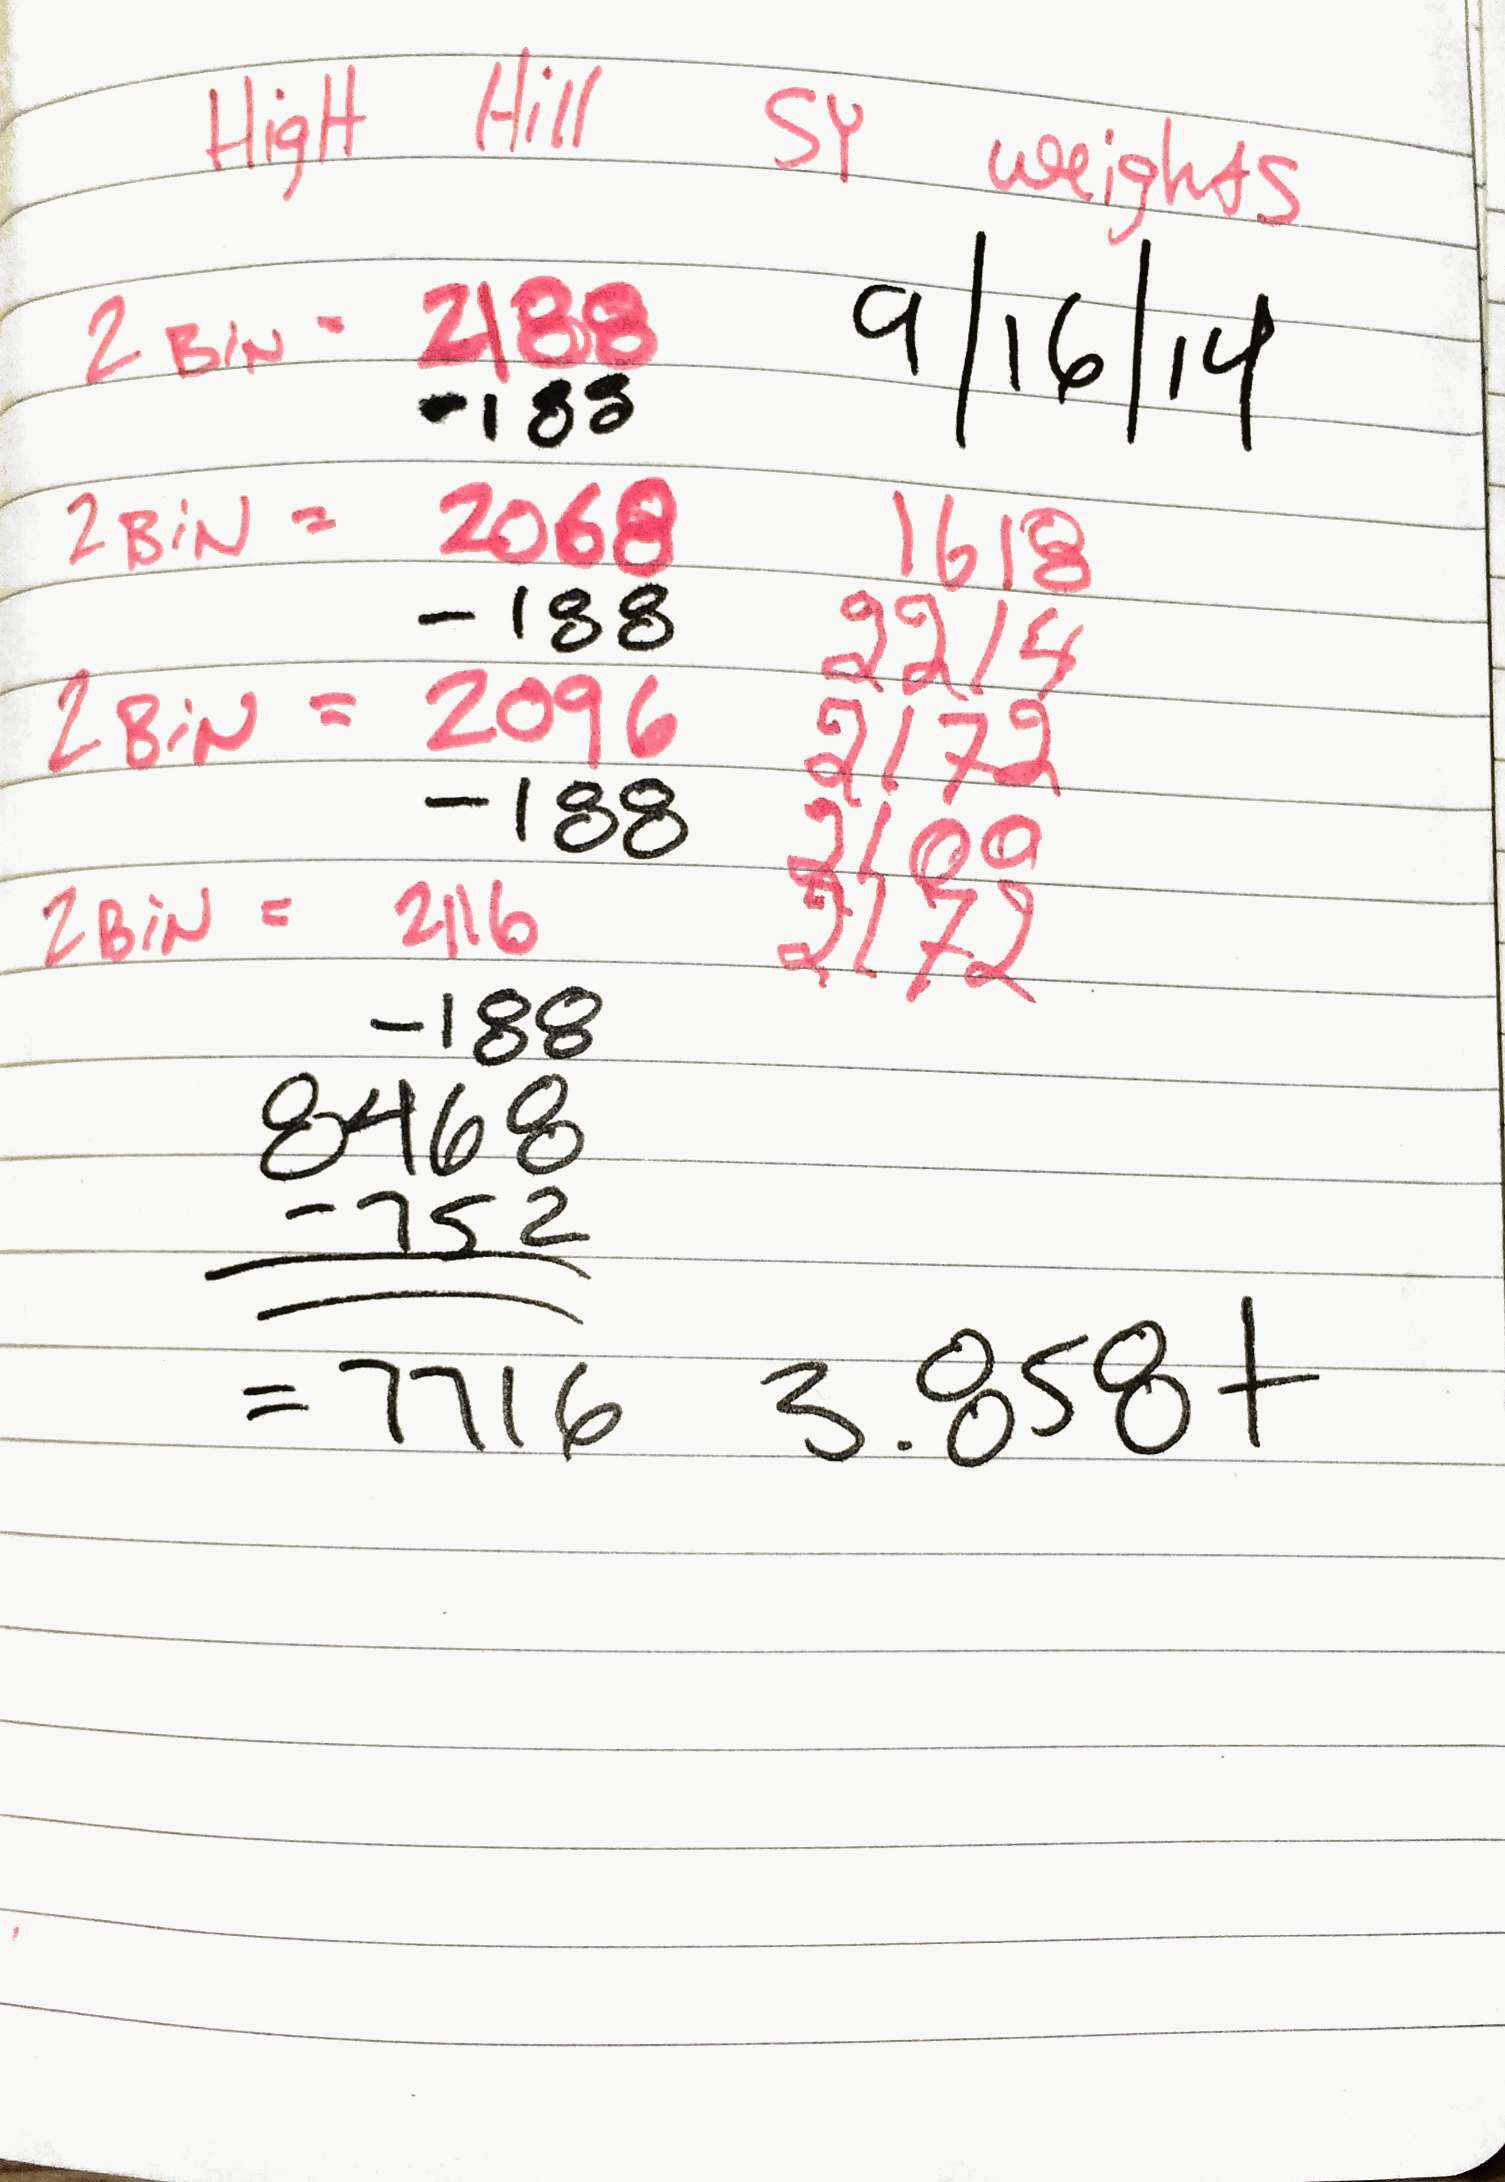 HigH Hill SY weights
2 BiN - 2188 9/16/14
-188
2 BiN = 2068 1618
-188 2214
2 BiN = 2096 2172
-188
2 BiN = 2116 2172
-188
8468
-752
= 7716 3.858t